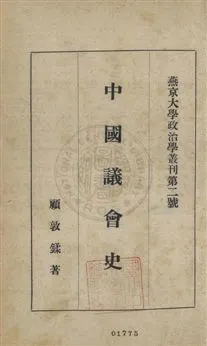 燕京大學政治學叢刊第二號
中國議會史
顧敦鍒著
01775